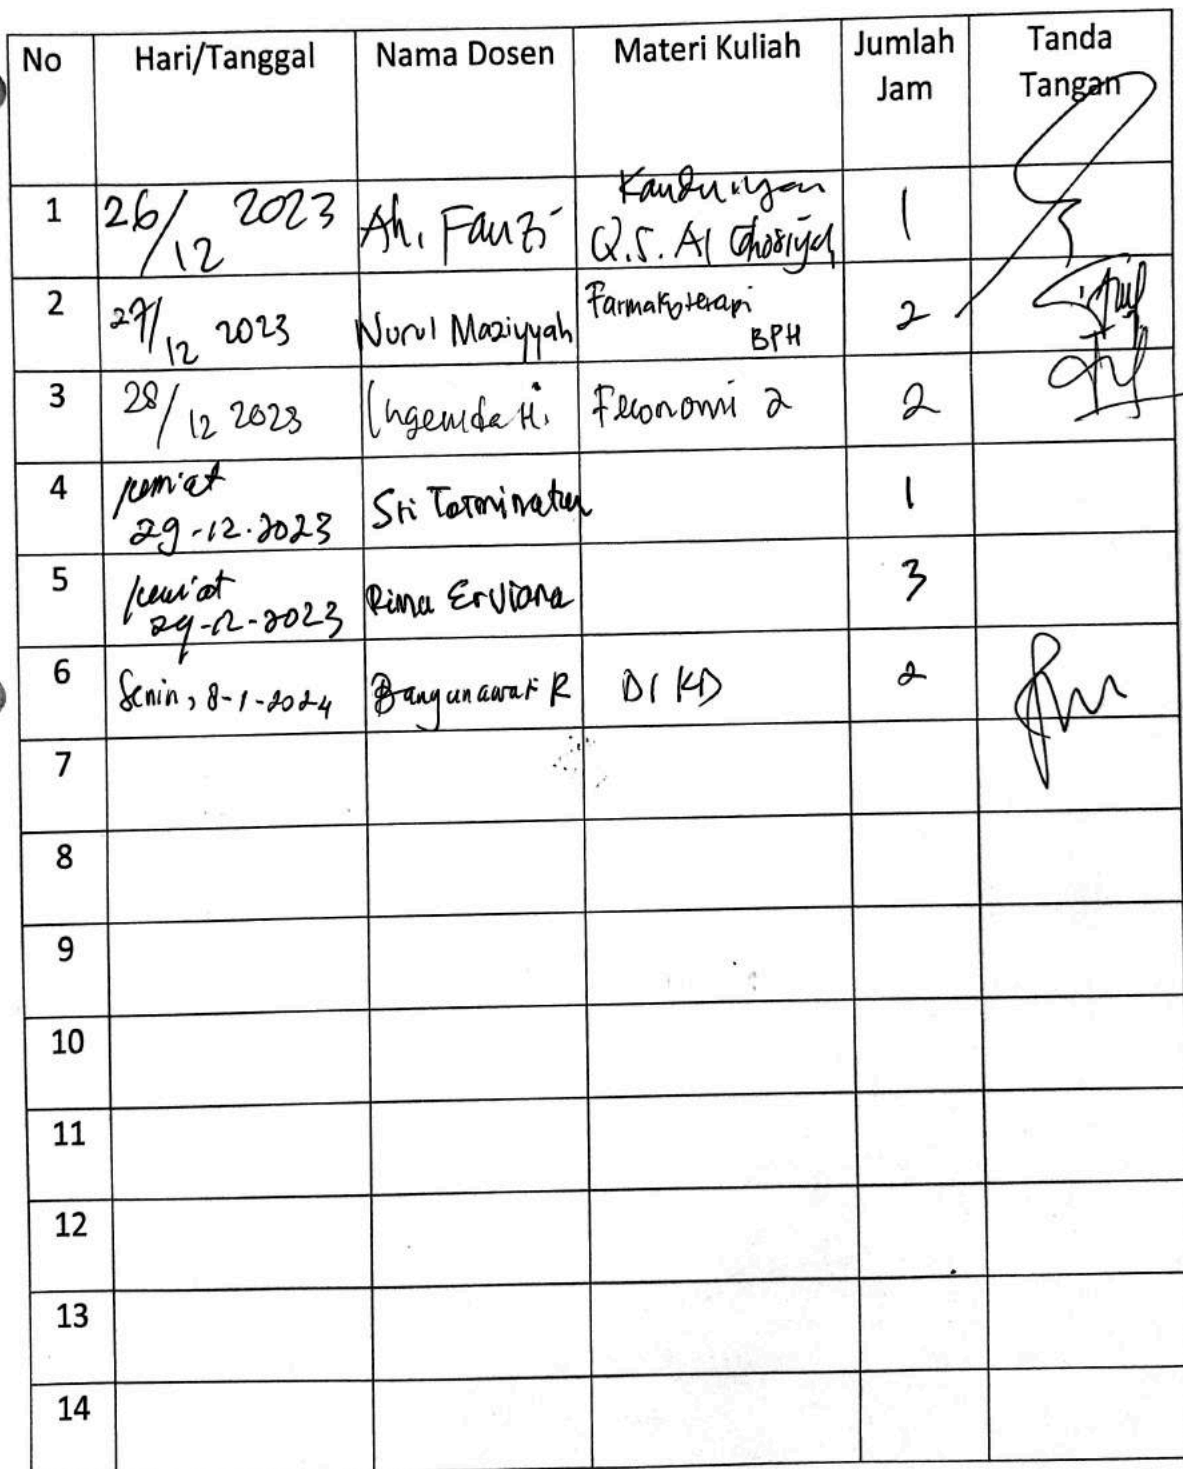 No Hari/Tanggal Nama Dosen Materi Kuliah Jumlah Jam Tanda Tangan
1 26/12 2023 Ah. Fauzi Kandungan Q.S. Al Ghosiyah 1
2 27/12 2023 Nurul Maziyyah Farmakoterapi BPH 2
3 28/12 2023 Ingenida H. Feconomi 2 2
4 29-12-2023 Sri Tasminatun 1
5 29-12-2023 Rima Erviana 3
6 Senin, 8-1-2024 Bangunawati R DI KD 2
7
8
9
10
11
12
13
14